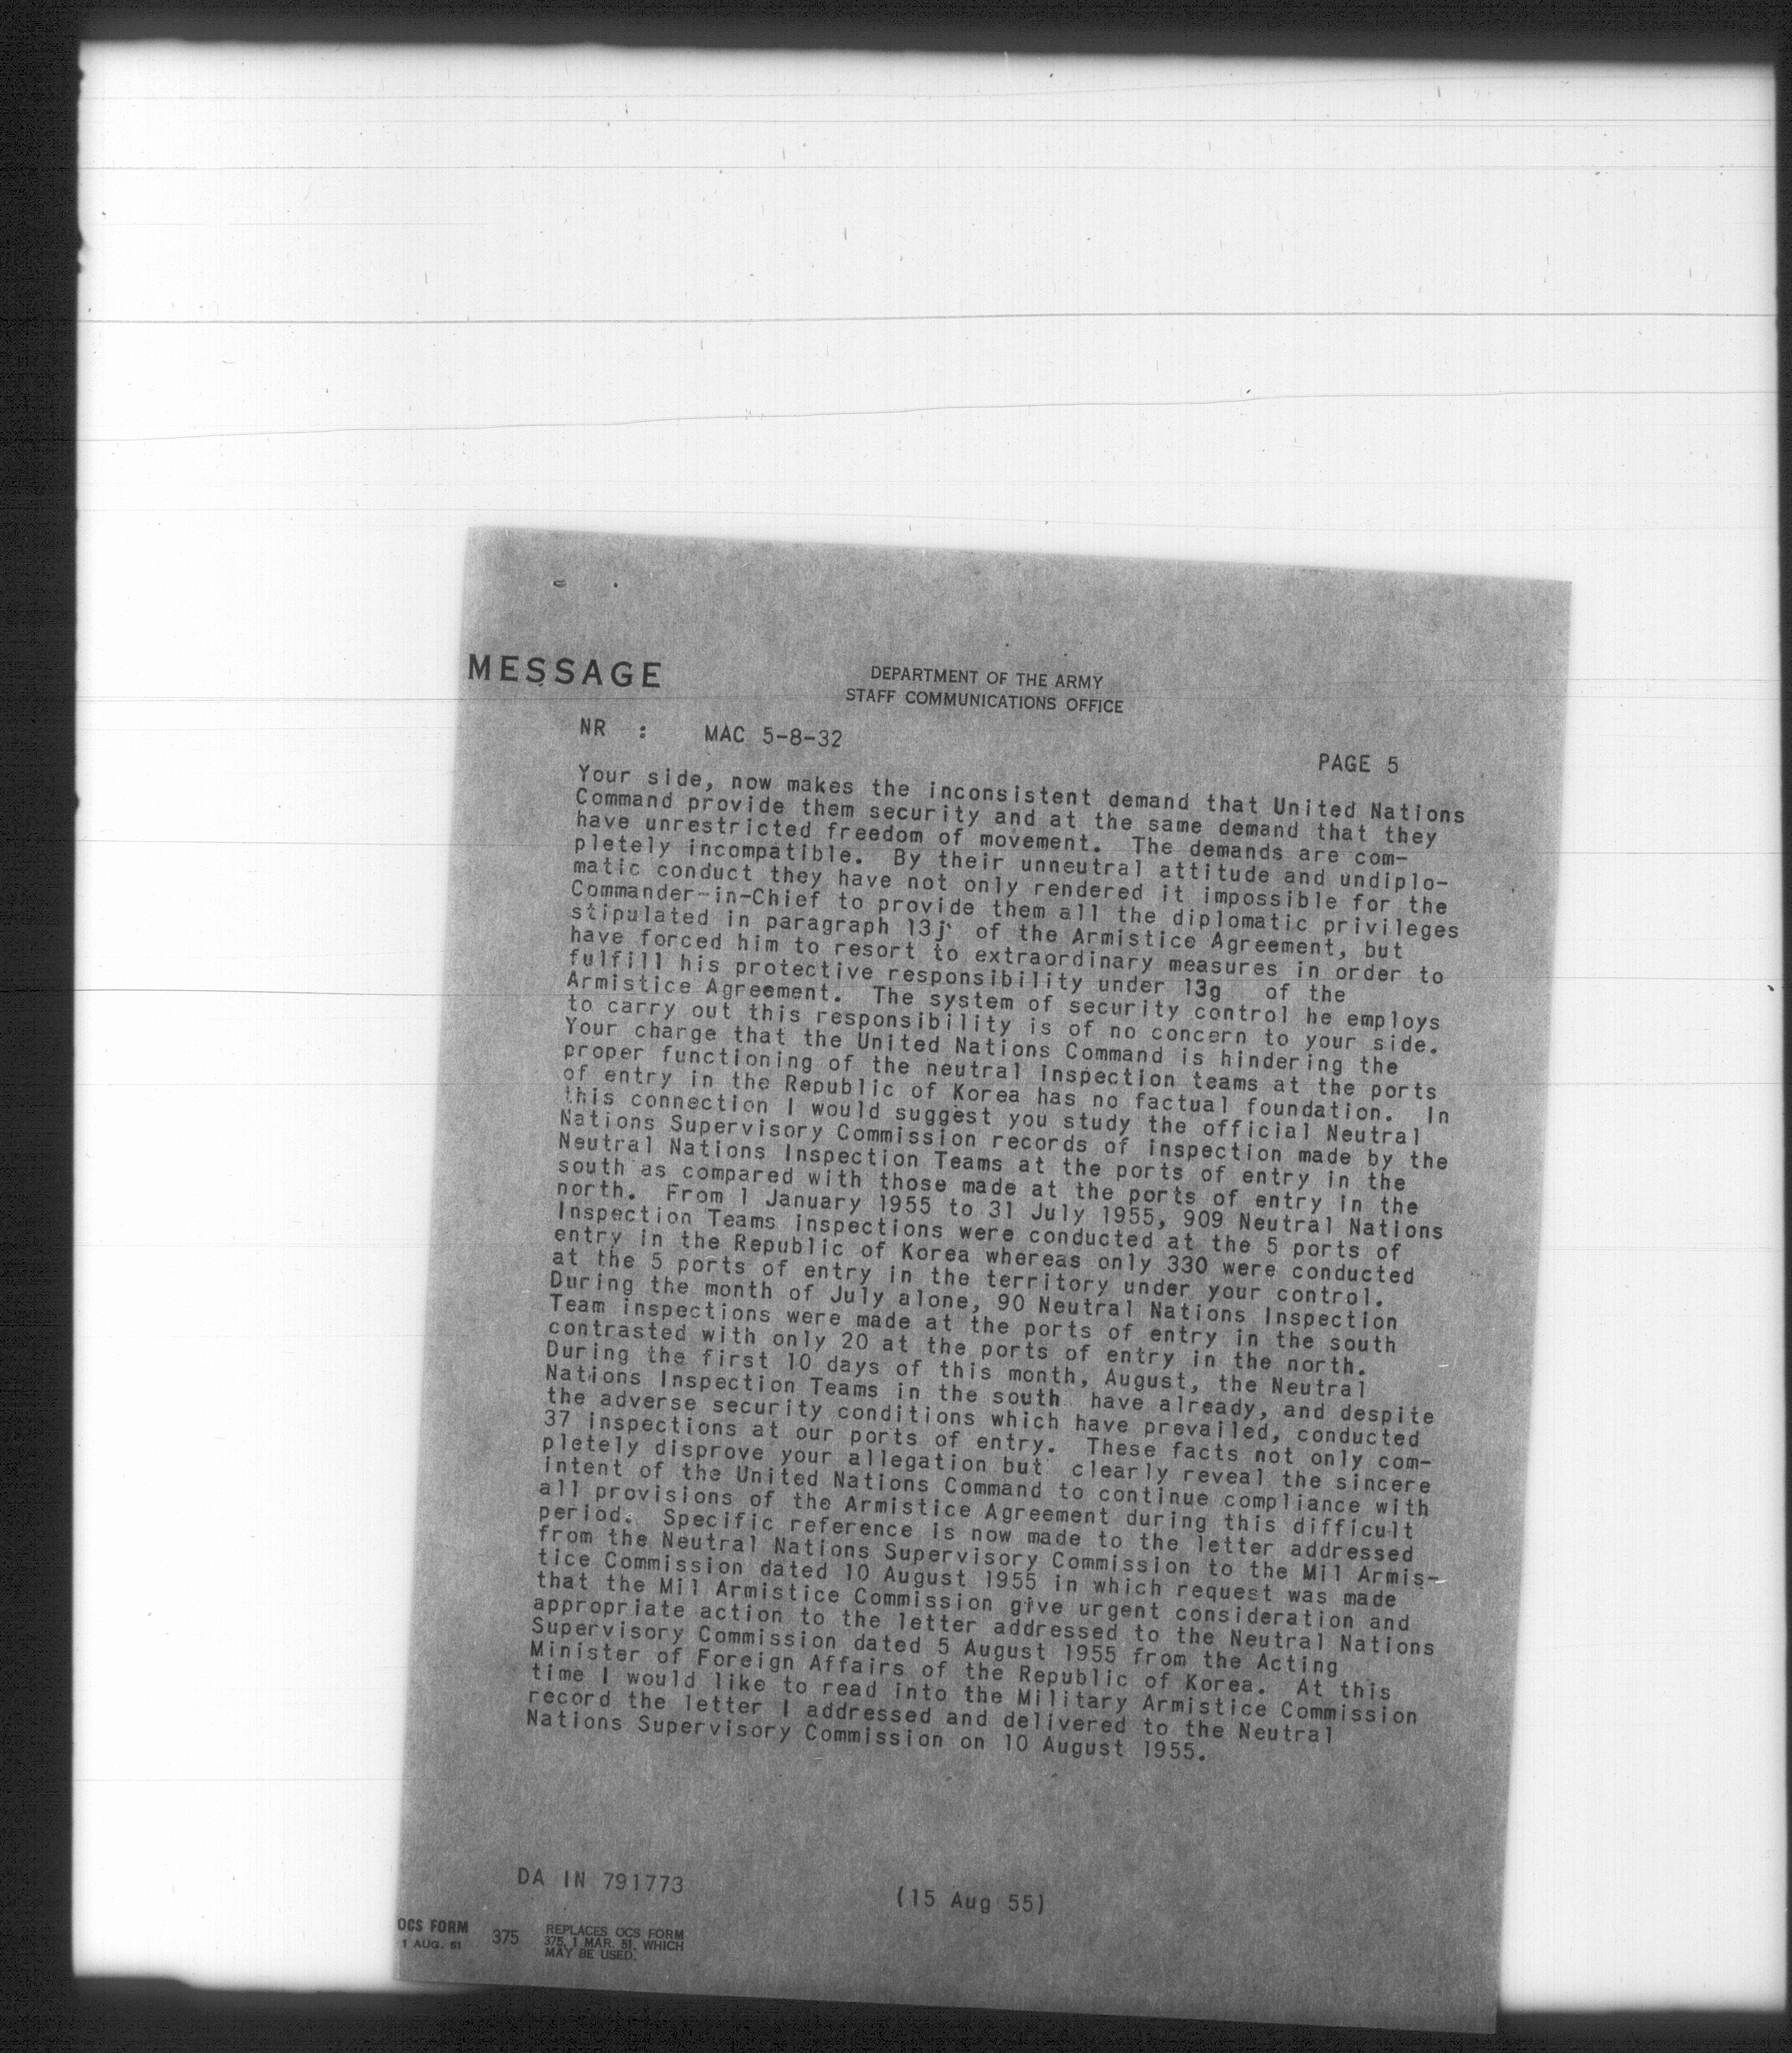 MESSAGE
DEPARTMENT OF THE ARMY
STAFF COMMUNICATIONS OFFICE
NR : MAC 5-8-32
PAGE 5
Your side, now makes the inconsistent demand that United Nations
Command provide them security and at the same demand that they
have unrestricted freedom of movement. The demands are com-
pletely incompatible. By their unneutral attitude and undiplo-
matic conduct they have not only rendered it impossible for the
Commander-in-Chief to provide them all the diplomatic privileges
stipulated in paragraph 13j of the Armistice Agreement, but
have forced him to resort to extraordinary measures in order to
fulfill his protective responsibility under 13g of the
Armistice Agreement. The system of security control he employs
to carry out this responsibility is of no concern to your side.
Your charge that the United Nations Command is hindering the
proper functioning of the neutral inspection teams at the ports
of entry in the Republic of Korea has no factual foundation. In
this connection I would suggest you study the official Neutral
Nations Supervisory Commission records of inspection made by the
Neutral Nations Inspection Teams at the ports of entry in the
south as compared with those made at the ports of entry in the
north. From 1 January 1955 to 31 July 1955, 909 Neutral Nations
Inspection Teams inspections were conducted at the 5 ports of
entry in the Republic of Korea whereas only 330 were conducted
at the 5 ports of entry in the territory under your control.
During the month of July alone, 90 Neutral Nations Inspection
Team inspections were made at the ports of entry in the south
contrasted with only 20 at the ports of entry in the north.
During the first 10 days of this month, August, the Neutral
Nations Inspection Teams in the south have already, and despite
the adverse security conditions which have prevailed, conducted
37 inspections at our ports of entry. These facts not only com-
pletely disprove your allegation but clearly reveal the sincere
intent of the United Nations Command to continue compliance with
all provisions of the Armistice Agreement during this difficult
period. Specific reference is now made to the letter addressed
from the Neutral Nations Supervisory Commission to the Mil Armis-
tice Commission dated 10 August 1955 in which request was made
that the Mil Armistice Commission give urgent consideration and
appropriate action to the letter addressed to the Neutral Nations
Supervisory Commission dated 5 August 1955 from the Acting
Minister of Foreign Affairs of the Republic of Korea. At this
time I would like to read into the Military Armistice Commission
record the letter I addressed and delivered to the Neutral
Nations Supervisory Commission on 10 August 1955.
DA IN 791773
(15 Aug 55)
OCS FORM
1 AUG. 51
375
REPLACES OCS FORM
375, 1 MAR. 51, WHICH
MAY BE USED.